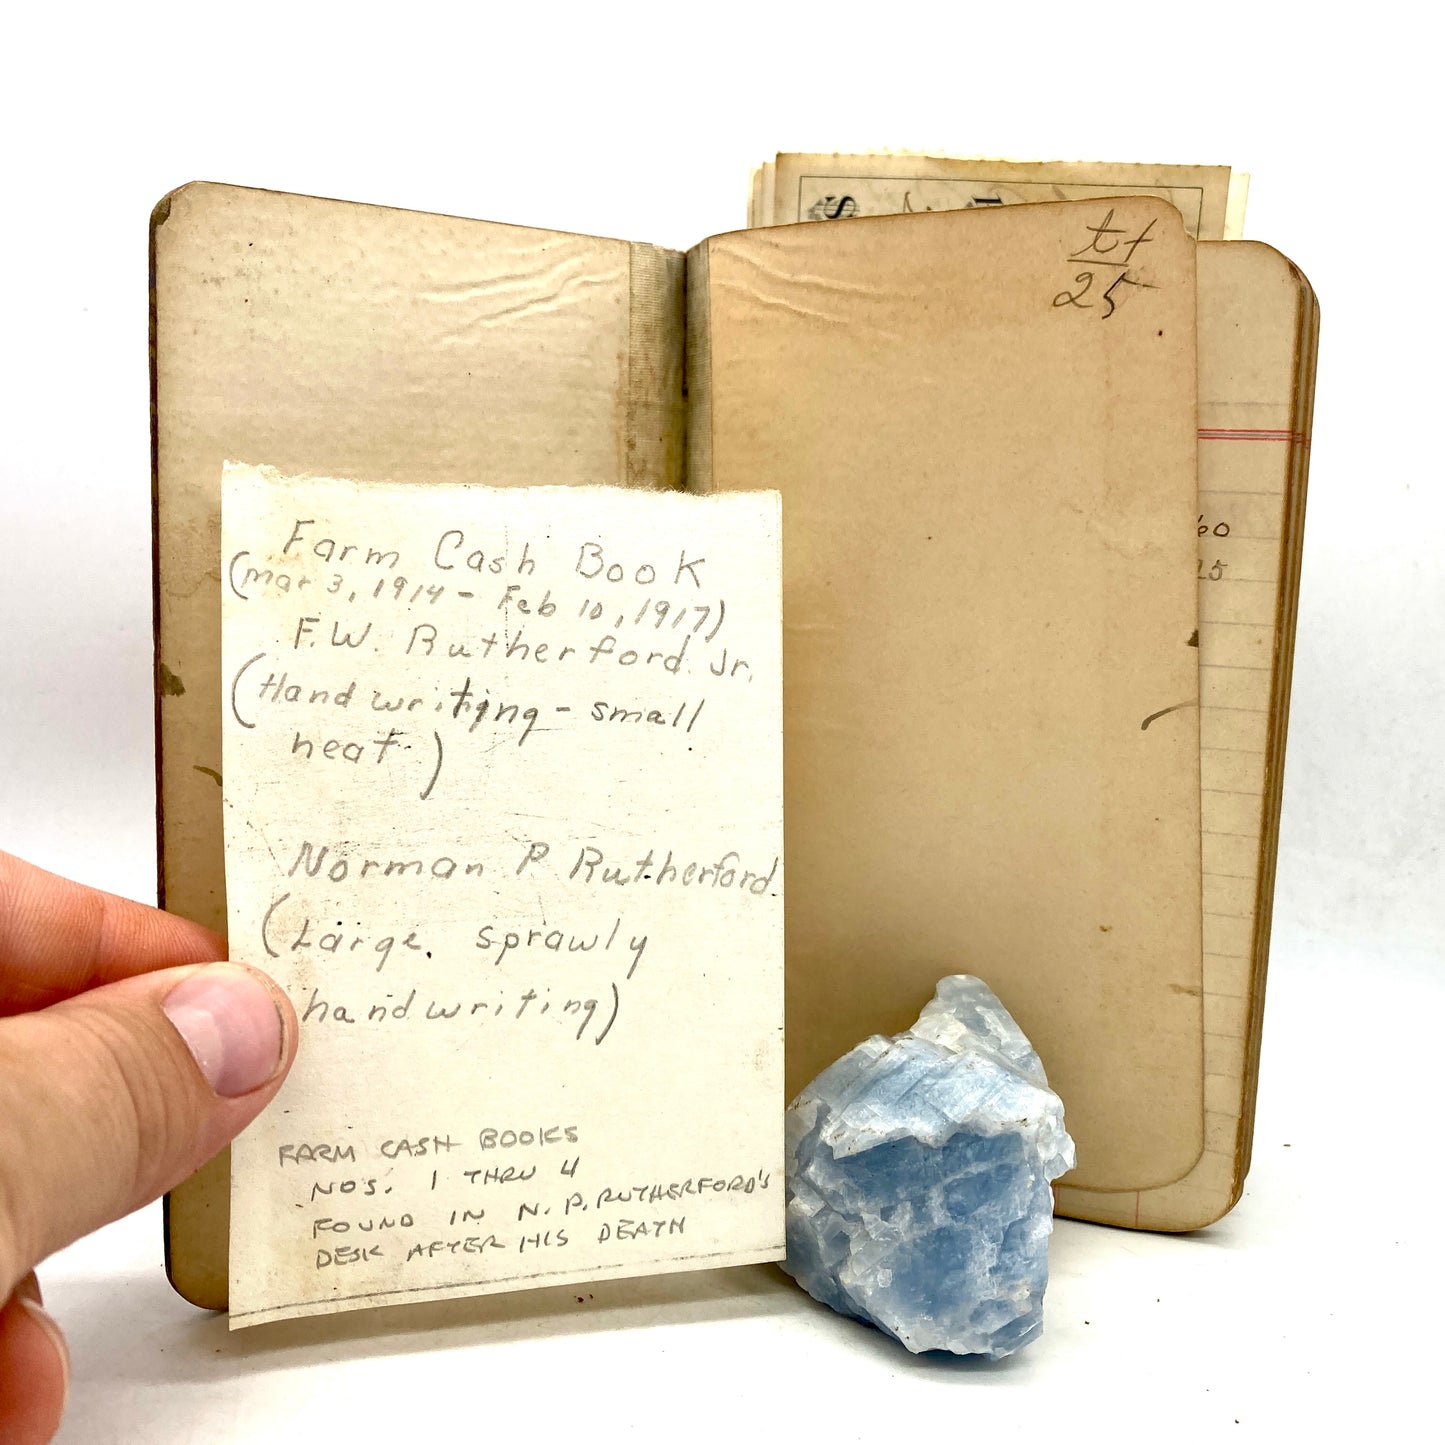 Farm Cash Book
(mar 3, 1914 - Feb 10, 1917)
F.W. Rutherford Jr.
(Handwriting - small
neat)
Norman P Rutherford
(Large, sprawly
handwriting)
FARM CASH BOOKS
NOS. 1 THRU 4
FOUND IN N. P. RUTHERFORD'S
DESK AFTER HIS DEATH
25
60
15